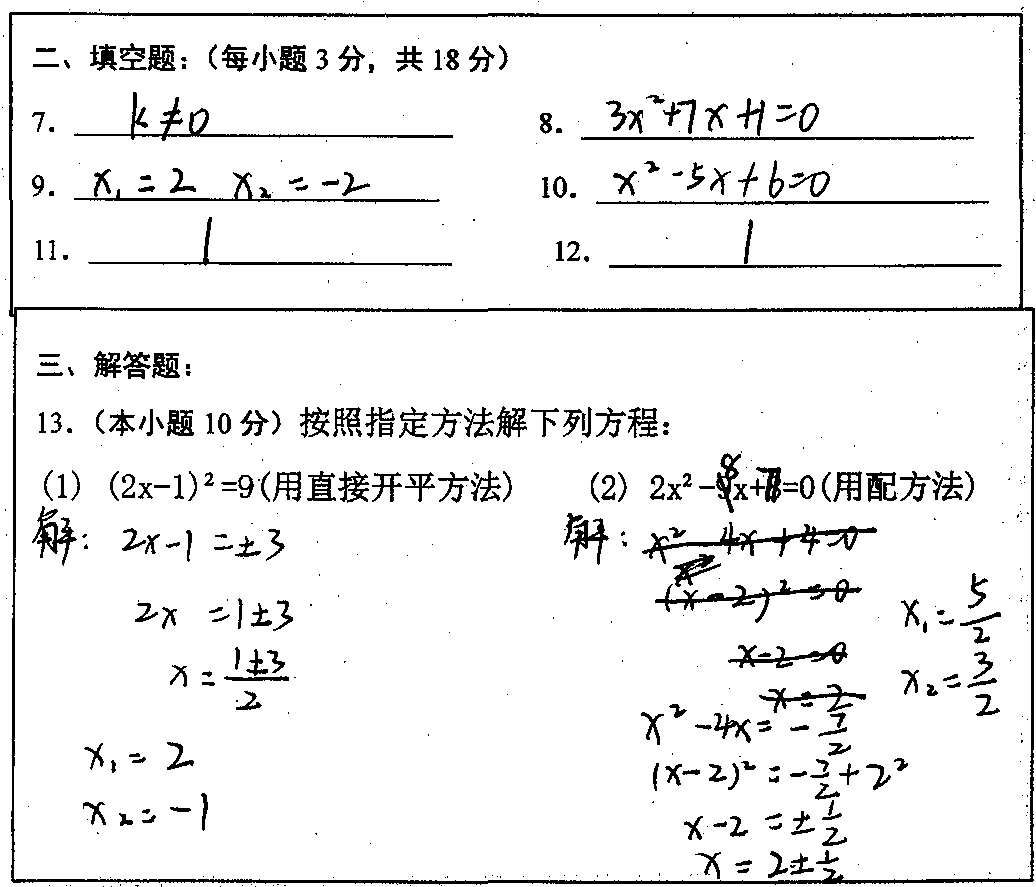 二、填空题：（每小题 3 分，共 18 分）
7. k≠0
8. 3x²+7x+1=0
9. x₁=2 x₂=-2
10. x²-5x+6=0
11. 1
12. 1
三、解答题：
13.（本小题 10 分）按照指定方法解下列方程：
(1) (2x-1)²=9(用直接开平方法)
(2) 2x²-8x+7=0(用配方法)
解： 2x-1=±3
2x =1±3
x=(1±3)/2
x₁=2
x₂=-1
解： x²-4x+4=0
(x-2)²=0
x-2=0
x=2
x²-4x=-7/2
(x-2)²=-7/2+2²
x-2=±1/2
x=2±1/2
x₁=5/2
x₂=3/2